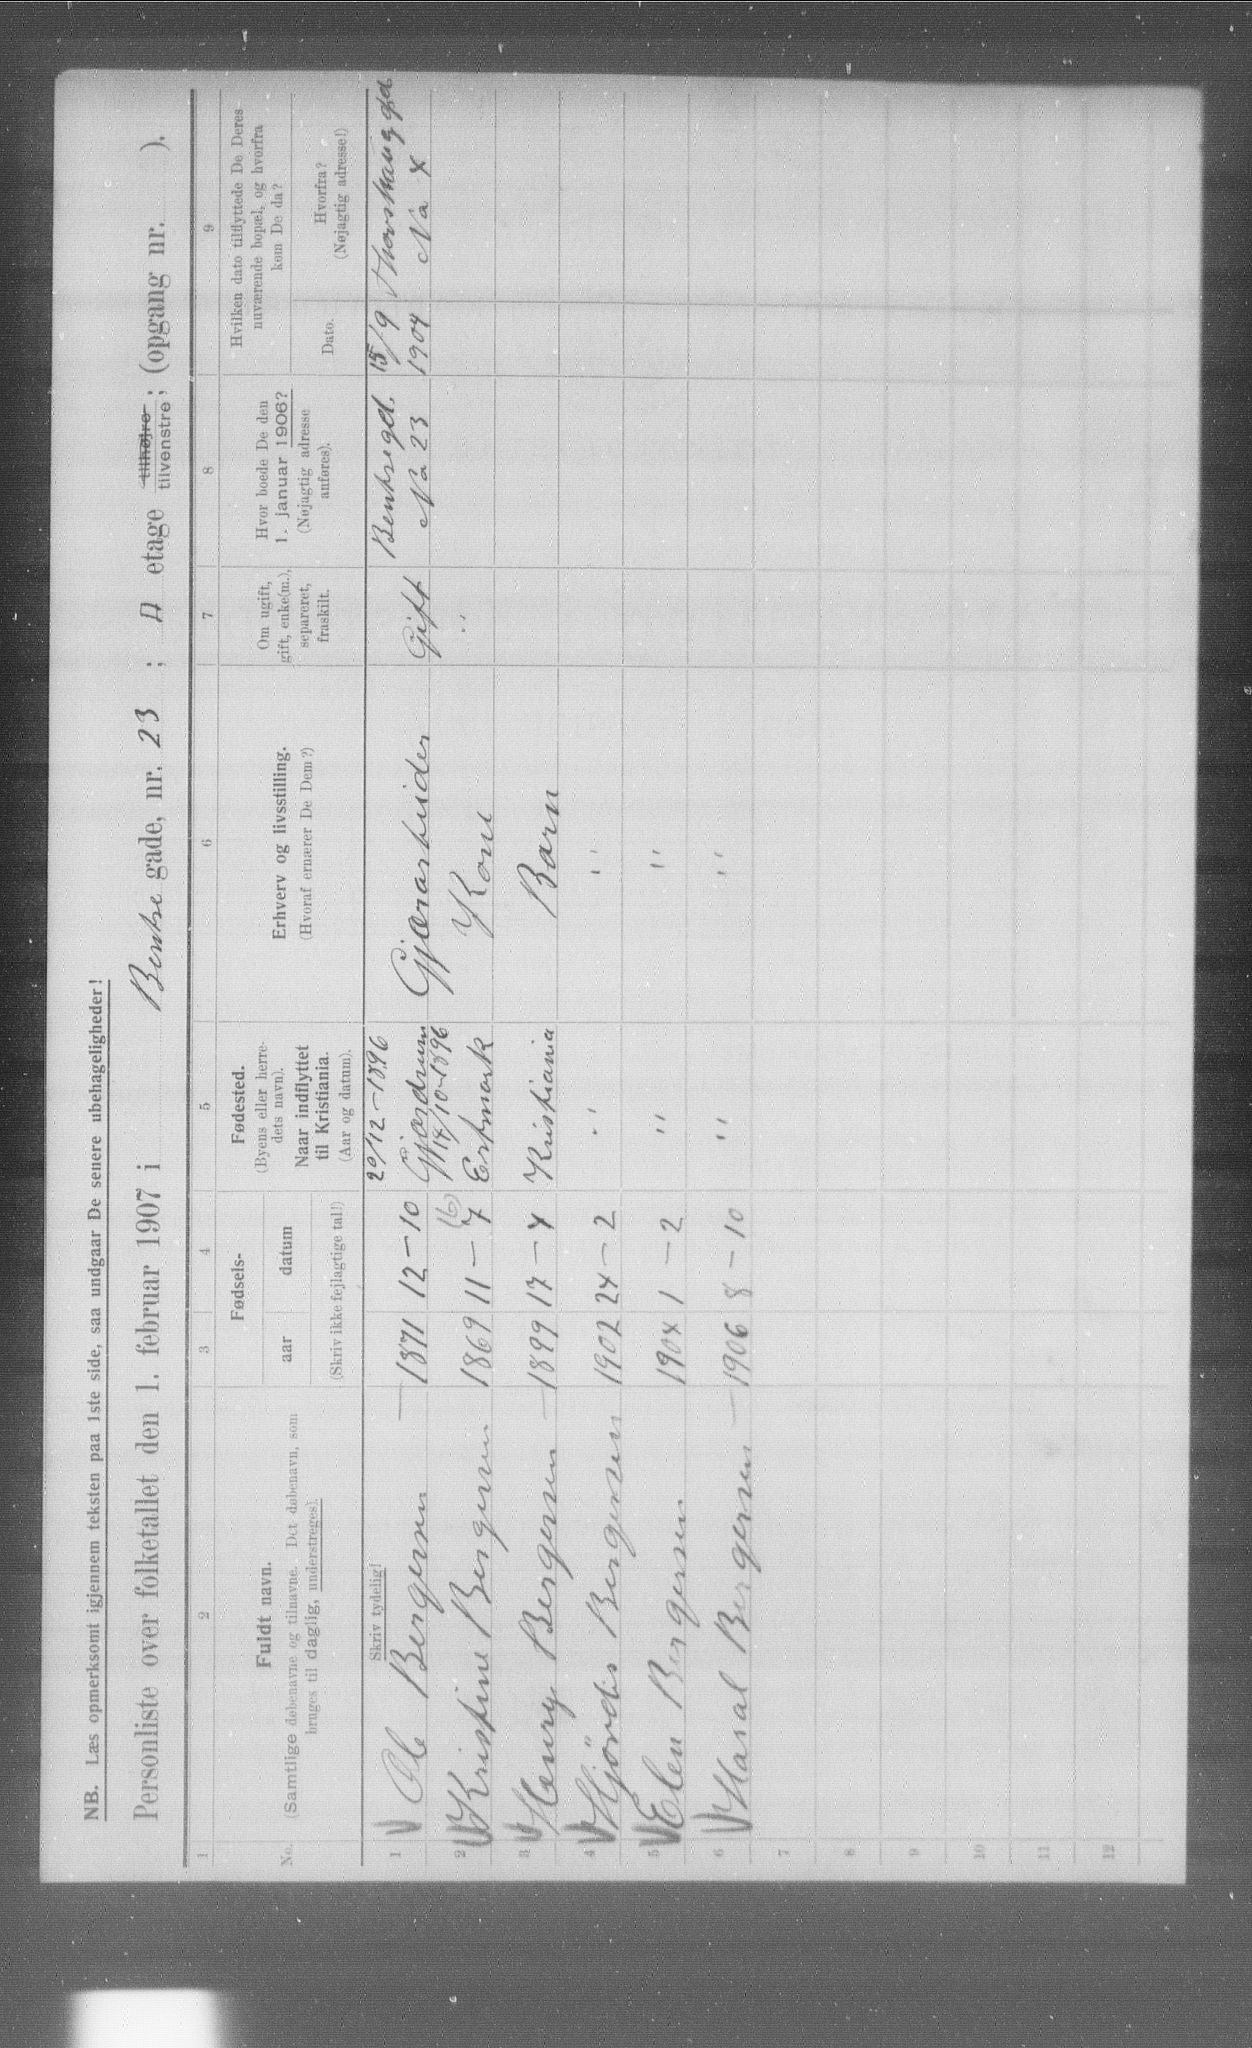 NB. Læs opmerksomt igjennem teksten paa 1ste side, saa undgaar De senere ubehageligheder!
Personliste over folketallet den 1. februar 1907 i Bentse gade, nr. 23 ; etage tilhøjre tilvenstre ; (opgang nr. ).
1 2 3 4 5 6 7 8 9
No.
Fuldt navn.
(Samtlige døbenavne og tilnavne. Det døbenavn, som
bruges til daglig, understreges).
Fødsels-
aar datum
(Skriv ikke fejlagtige tal!)
Fødested.
(Byens eller herre-
dets navn).
Naar indflyttet
til Kristiania.
(Aar og datum).
Erhverv og livsstilling.
(Hvoraf ernærer De Dem?)
Om ugift,
gift, enke(m.),
separeret,
fraskilt.
Hvor boede De den
1. januar 1906?
(Nøjagtig adresse
anføres).
Hvilken dato tilflyttede De Deres
nuværende bopæl, og hvorfra
kom De da?
Dato.
Hvorfra?
(Nøjagtig adresse!)
Skriv tydelig!
20/12-1896
1 Ole Bergersen 1871 12-10 Gjærdrum Gift Bentsegd. 15/9
14/10-1896 No 23 1904 No
2 Kristine Bergersen 1869 11-7 Kone "
3 Henry Bergersen 1899 17-4 Kristiania Barn
4 Hjördis Bergersen 1902 24-2 " "
5 Elen Bergersen 1904 1-2 " "
6 Bergersen 1906 8-10 " "
7
8
9
10
11
12